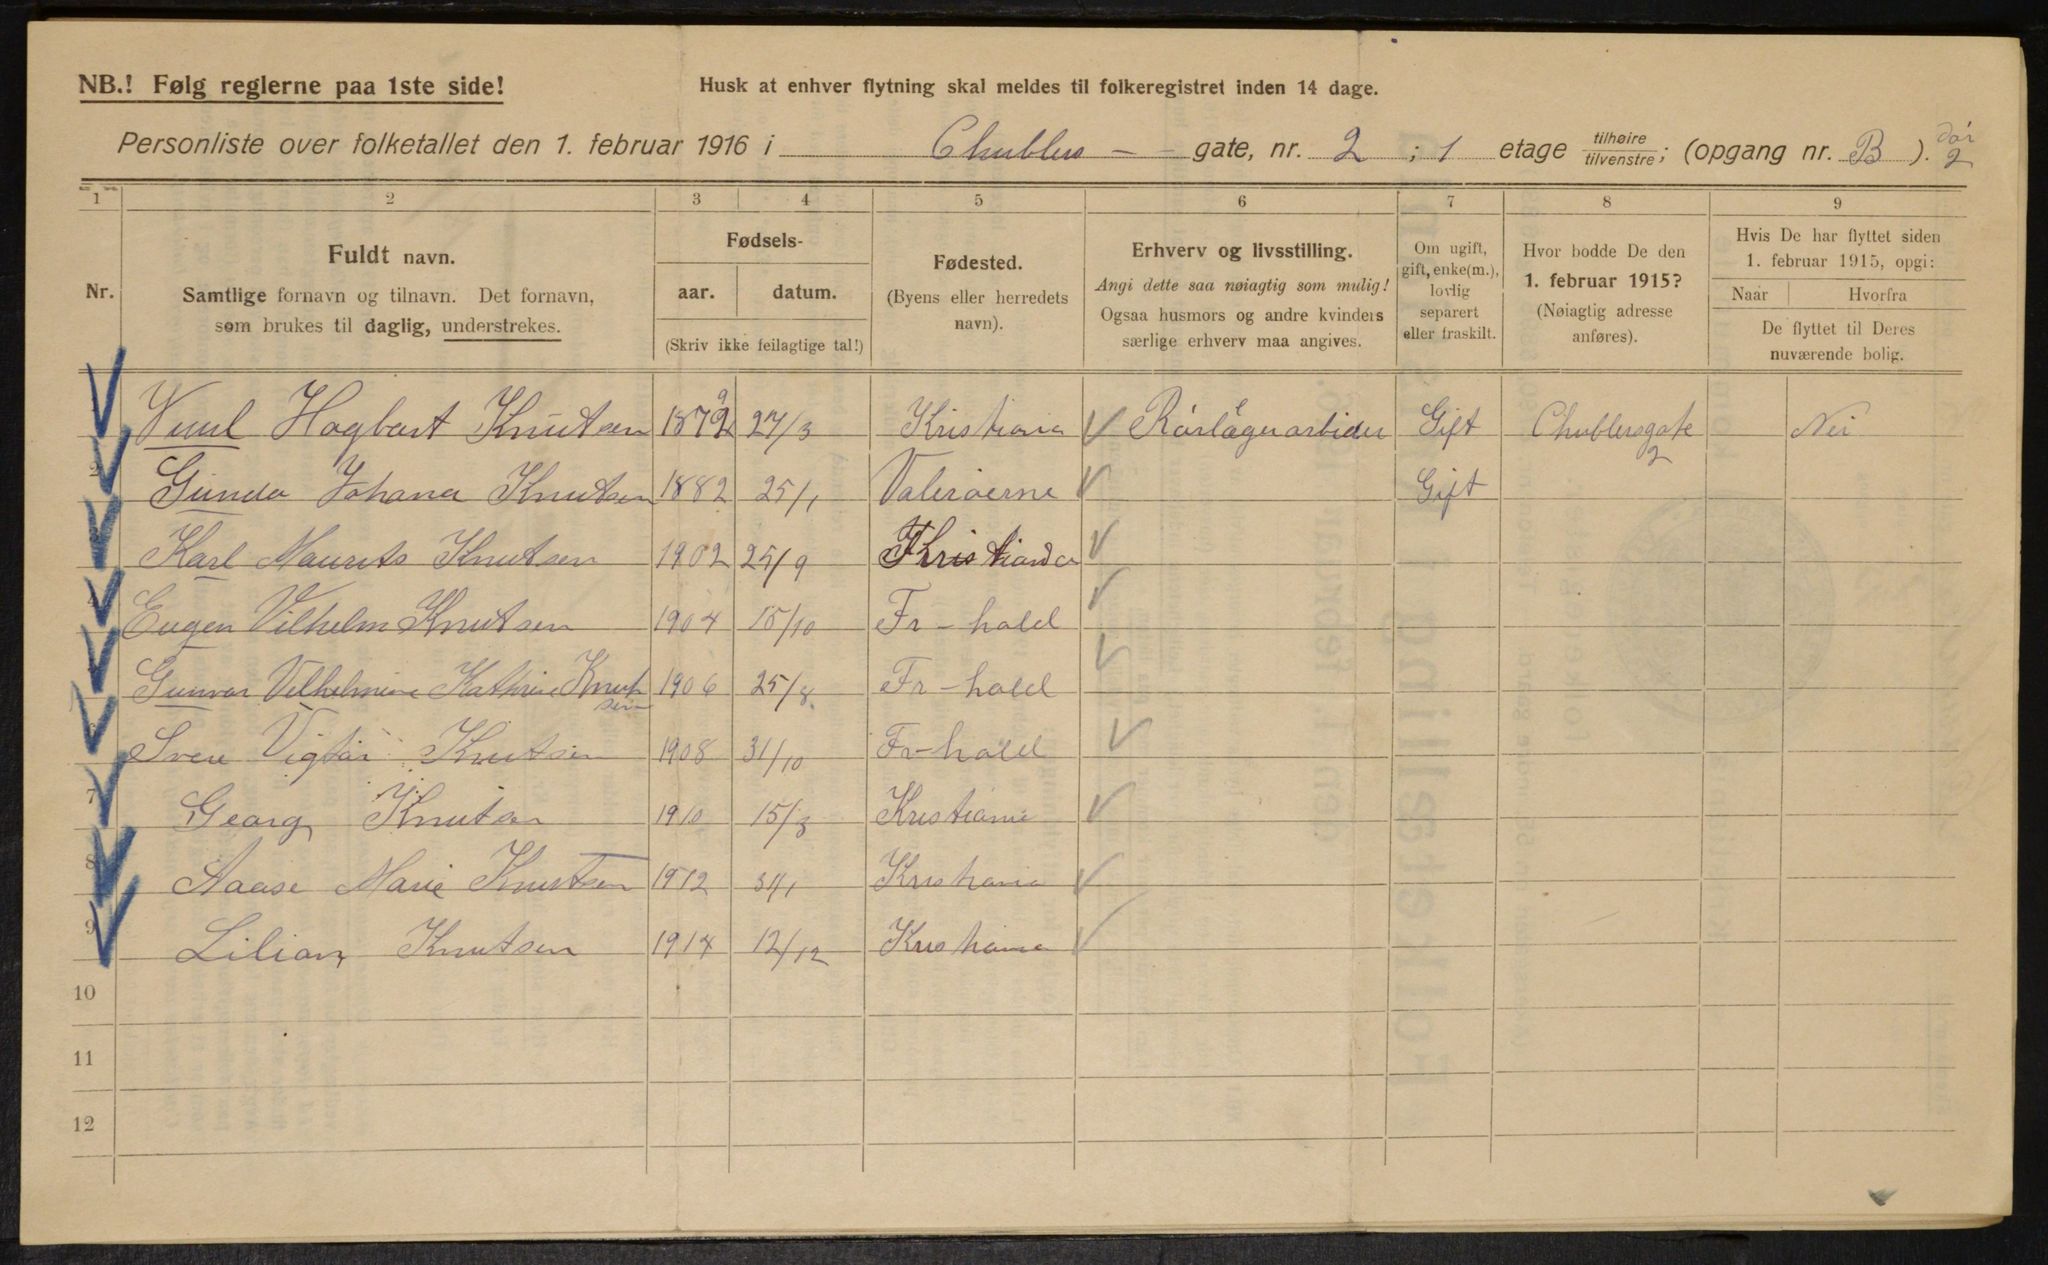 NB.! Følg reglerne paa 1ste side!
Husk at enhver flytning skal meldes til folkeregistret inden 14 dage.
Personliste over folketallet den 1. februar 1916 i Chublers - - gate, nr. 2 ; 1 etage tilhøire/tilvenstre; (opgang nr. B ). dør 2
1 2 3 4 5 6 7 8 9
Nr.
Fuldt navn.
Samtlige fornavn og tilnavn. Det fornavn,
som brukes til daglig, understrekes.
Fødsels-
aar. datum.
(Skriv ikke feilagtige tal!)
Fødested.
(Byens eller herredets
navn).
Erhverv og livsstilling.
Angi dette saa nøiagtig som mulig!
Ogsaa husmors og andre kvinders
særlige erhverv maa angives.
Om ugift,
gift, enke(m.),
lovlig
separert
eller fraskilt.
Hvor bodde De den
1. februar 1915?
(Nøiagtig adresse
anføres).
Hvis De har flyttet siden
1. februar 1915, opgi:
Naar Hvorfra
De flyttet til Deres
nuværende bolig.
Hagbart Knutsen 1879 27/3 Kristiana Rörlägerarbider Gift Chublersgate 2 Nei
2 Gunda Johana Knutsen 1882 25/1 Valerøerne Gift
3 Karl Maurits Knutsen 1902 25/9 Kristiania
4 Eugen Vilhelm Knutsen 1904 15/10 Fr-hald
Gunvor Vilhelmine Kathrine Knutsen 1906 25/8 Fr-hald
6 Svere Vigtor Knutsen 1908 31/10 Fr-hald
7 Georg Knutsen 1910 15/3 Kristiania
8 Aaase Marie Knutsen 1912 Kristiania
9 Lilian Knutsen 1914 12/12 Kristiania
10
11
12